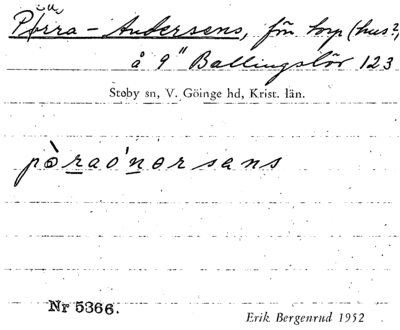 Pörra-Andersens, förr torp (hus?)
å 9" Ballingslöv 123
Stoby sn, V. Göinge hd, Krist. län.
pò̀raónərsens
Nr 5366.
Erik Bergenrud 1952